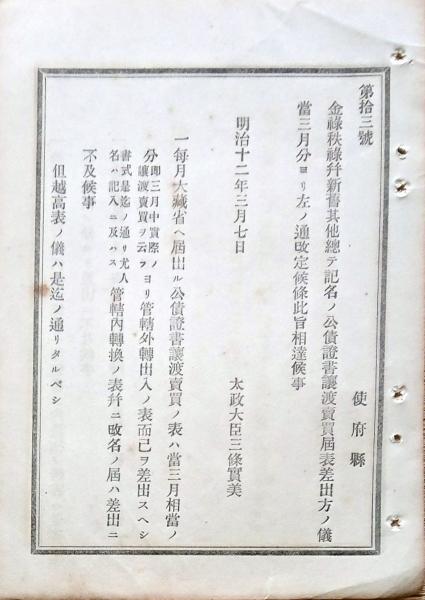 第拾三號
使府縣
金祿秩祿幷新舊其他總テ記名ノ公債證書讓渡賣買屆表差出方ノ儀
當三月分ヨリ左ノ通改定候條此旨相達候事
明治十二年三月七日
太政大臣三條實美
一每月大藏省ヘ屆出ル公債證書讓渡賣買ノ表ハ當三月相當ノ
分卽三月中實際ノ讓渡賣買ヲ云フヨリ管轄外轉出入ノ表而已ヲ差出スヘシ
書式是迄ノ通リ尤人名ハ記入ニ及ハス管轄內轉換ノ表幷ニ改名ノ屆ハ差出ニ
不及候事
但越高表ノ儀ハ是迄ノ通リタルベシ